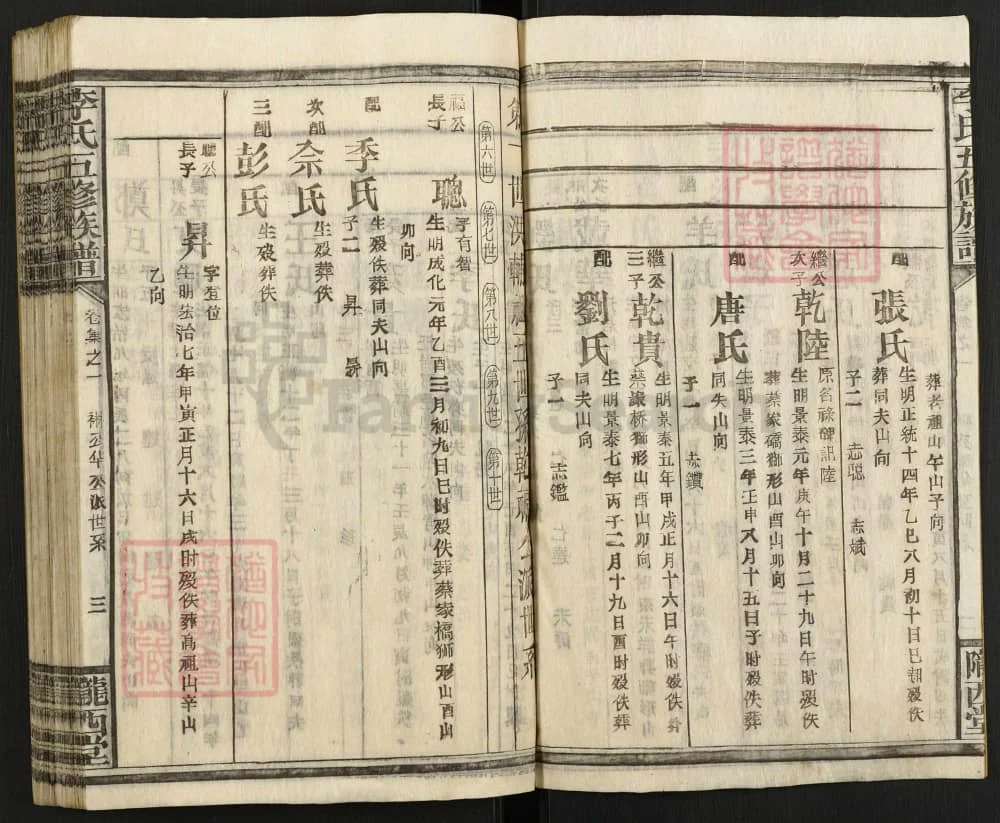 葬考祖山午山子向
配
張氏
生明正統十四年乙巳八月初十日巳時歿佚
葬同夫山向
子二 志聰 志斌
繼公
次子
乾陸
原名祿碑訊陸
生明景泰元年庚午十月二十九日午時歿佚
葬蔡家礄獅形山酉山卯向
配
唐氏
生明景泰三年壬申八月十五日子時歿佚葬
同夫山向
子一 志鑽
繼公
三子
乾貴
生明景泰五年甲戌正月十六日午時歿佚葬
蔡家桥獅形山酉山卯向
配
劉氏
生明景泰七年丙子二月十九日酉時歿佚葬
同夫山向
子一 志鑑
第六世
第七世
第八世
第九世
第十世
福公
長子
聰
字有智
生明成化元年乙酉三月初九日巳時歿佚葬蔡家橋獅形山酉山
卯向
配
李氏
生歿佚葬同夫山向
子二 昇
次配
佘氏
生歿葬佚
三配
彭氏
生歿葬佚
聰公
長子
昇
字登位
生明宏治七年甲寅正月十六日戌時歿佚葬高祖山辛山
乙向
李氏五修族譜
卷集之一
三
隴西堂
李氏五修族譜
隴西堂